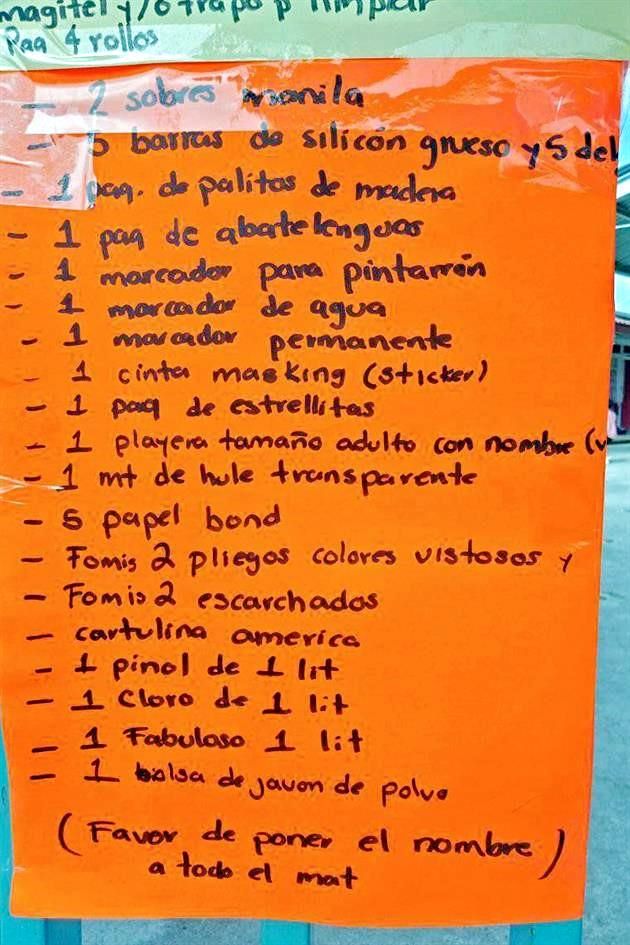 magitel y/o trapo p limpiar
Paq 4 rollos
- 2 sobres manila
- 5 barras de silicón grueso y 5 del
- 1 paq. de palitos de madera
- 1 paq de abatelenguas
- 1 marcador para pintarrón
- 1 marcador de agua
- 1 marcador permanente
- 1 cinta masking (sticker)
- 1 paq de estrellitas
- 1 playera tamaño adulto con nombre (v
- 1 mt de hule transparente
- 5 papel bond
- Fomis 2 pliegos colores vistosos y
- Fomis 2 escarchados
- cartulina america
- 1 pinol de 1 lit
- 1 Cloro de 1 lit
- 1 Fabuloso 1 lit
- 1 bolsa de javon de polvo
(Favor de poner el nombre)
a todo el mat